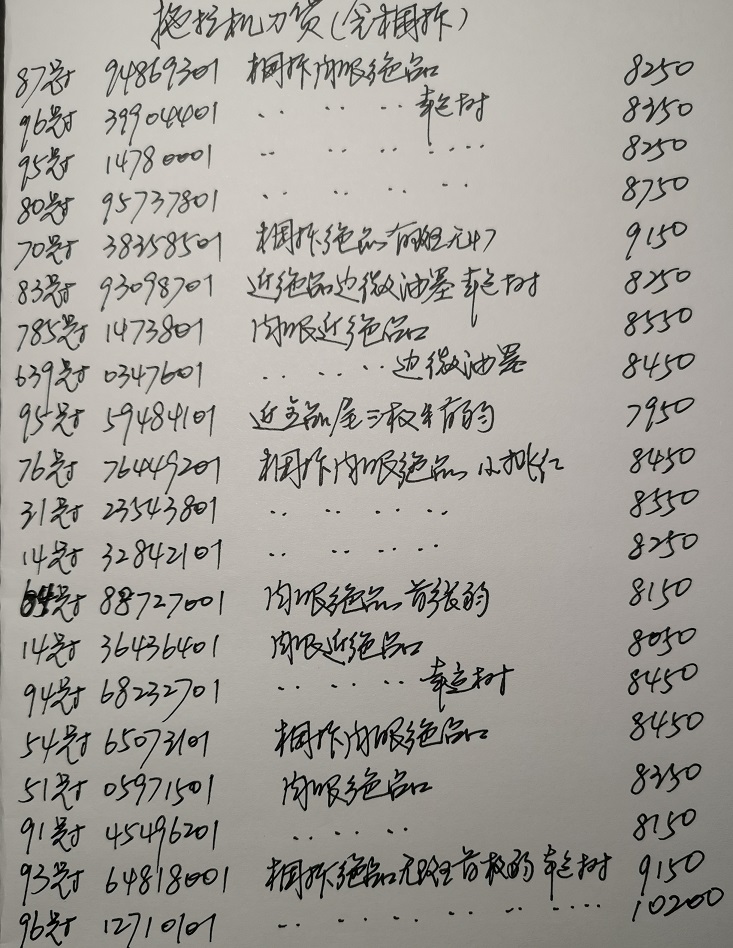 拖拉机刀货(含捆拆)
87号 94869301 捆拆肉眼绝品 8250
96号 39904401 .. .. .. .. 幸运树 8350
95号 14780001 .. .. .. .. .... 8250
80号 95737801 .. .. .. .. 8750
70号 38358501 捆拆绝品 无47 9150
83号 93098701 近绝品边微油墨 幸运树 8250
785号 1473801 肉眼近绝品 8550
639号 0347601 .. .. .. .. 边微油墨 8450
95号 59484101 近全品尾三枚 7950
76号 76449201 捆拆肉眼绝品 小桃红 8450
31号 23543801 .. .. .. .. 8550
14号 32842101 .. .. .. .. 8250
64号 88727001 肉眼绝品 首张 8150
14号 36436401 肉眼近绝品 8050
94号 68232701 .. .. .. .. 幸运树 8450
54号 65073101 捆拆肉眼绝品 8450
51号 05971501 肉眼绝品 8350
91号 45496201 .. .. .. .. 8150
93号 64818001 捆拆绝品无斑 首枚 幸运树 9150
96号 12710101 .. .. .. .. .. .. .... 10200